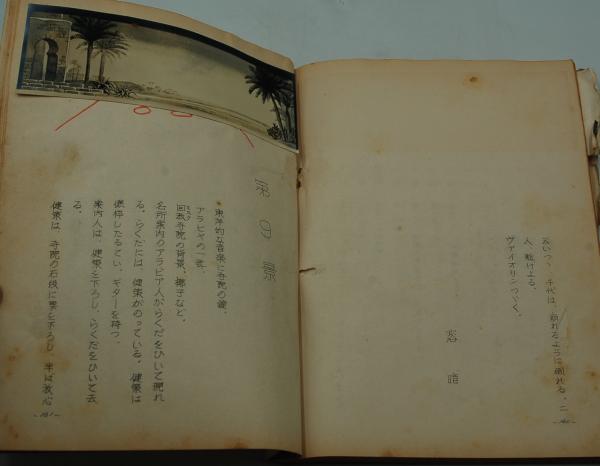 千代は、崩れるように倒れる。二
人、駈けよる。
ヴァイオリンつづく。
溶暗
-140-
の景
東洋的な音楽に寺院の鐘。
アラビヤの一夜。
回教寺院の背景、椰子など。
名所案内のアラビア人がらくだをひいて現れ
る。らくだには、健策がのっている。健策は
憔悴したるてい、ギターを持つ。
案内人は、健策を下ろし、らくだをひいて去
る。
健策は、寺院の石段に腰を下ろし、半ば放心
-141-